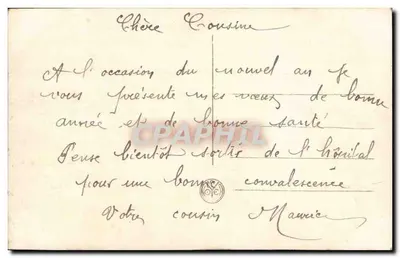 Chère Cousine
A l'occasion du nouvel an je
vous présente mes vœux de bonne
année et de bonne santé
Pense bientôt sortir de l'hôpital
pour une bonne convalescence
Votre cousin Maurice